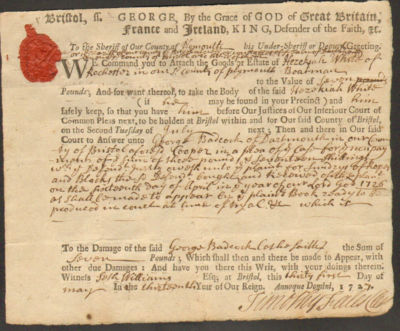 Bristol, ss. GEORGE, By the Grace of GOD of Great Britain,
France and Ireland, KING, Defender of the Faith, &c.
To the Sheriff of Our County of Plymouth his Under-Sheriff or Deputy Greeting.
WE Command you to Attach the Goods or Estate of Hezekiah White of
Rochester in our County of plymouth Boatman
to the Value of Seven pounds
Pounds; And for want thereof, to take the Body of the said Hezekiah White
(if he may be found in your Precinct) and him
safely keep, so that you have him before our Justices of Our Inferiour Court of
Common Pleas next, to be holden at Bristol within and for Our said County of Bristol,
on the Second Tuesday of July next; Then and there in Our said
Court to Answer unto George Badcock of Dartmouth in our County
of Bristol Cooper in a plea of
the sum of three pounds
on the sixteenth day of April in year of our Lord 1726
as shall be made to appear by
produced in court
To the Damage of the said George Badcock as he saith the Sum of
Seven Pounds; Which shall then and there be made to Appear, with
other due Damages: And have you there this Writ, with your doings therein.
Witness Seth Williams Esq; at Bristol, this thirty first Day of
may In the thirteenth Year of Our Reign. Annoque Domini, 1727.